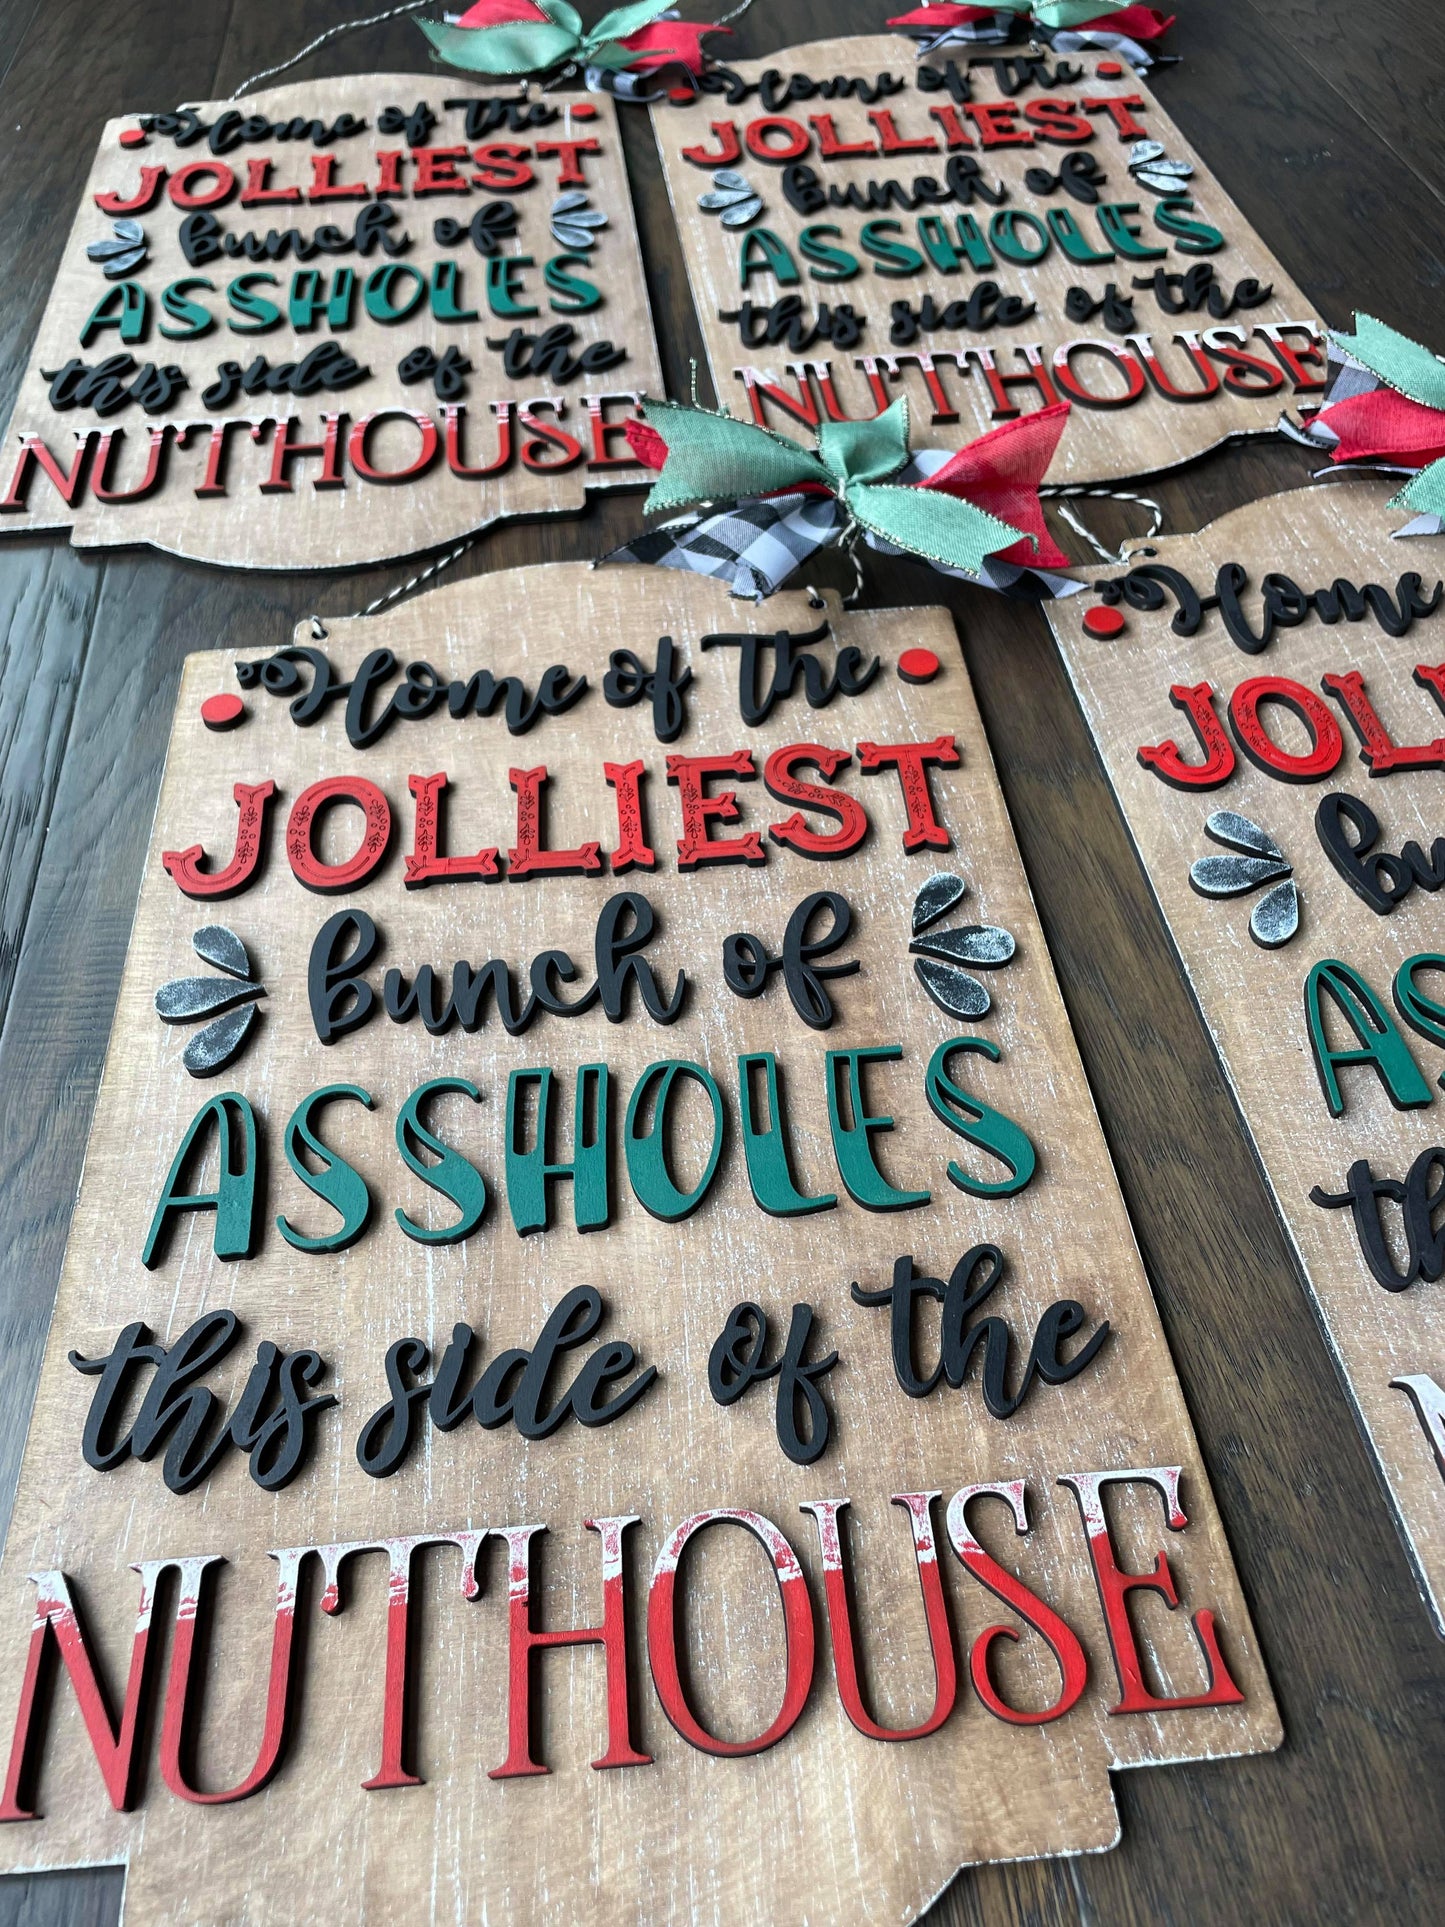 Home of the
JOLLIEST
bunch of
ASSHOLES
this side of the
NUTHOUSE
Home of the
JOLLIEST
bunch of
ASSHOLES
this side of the
NUTHOUSE
Home of the
JOLLIEST
bunch of
ASSHOLES
this side of the
NUTHOUSE
Home
JOLL
bu
AS
th
N